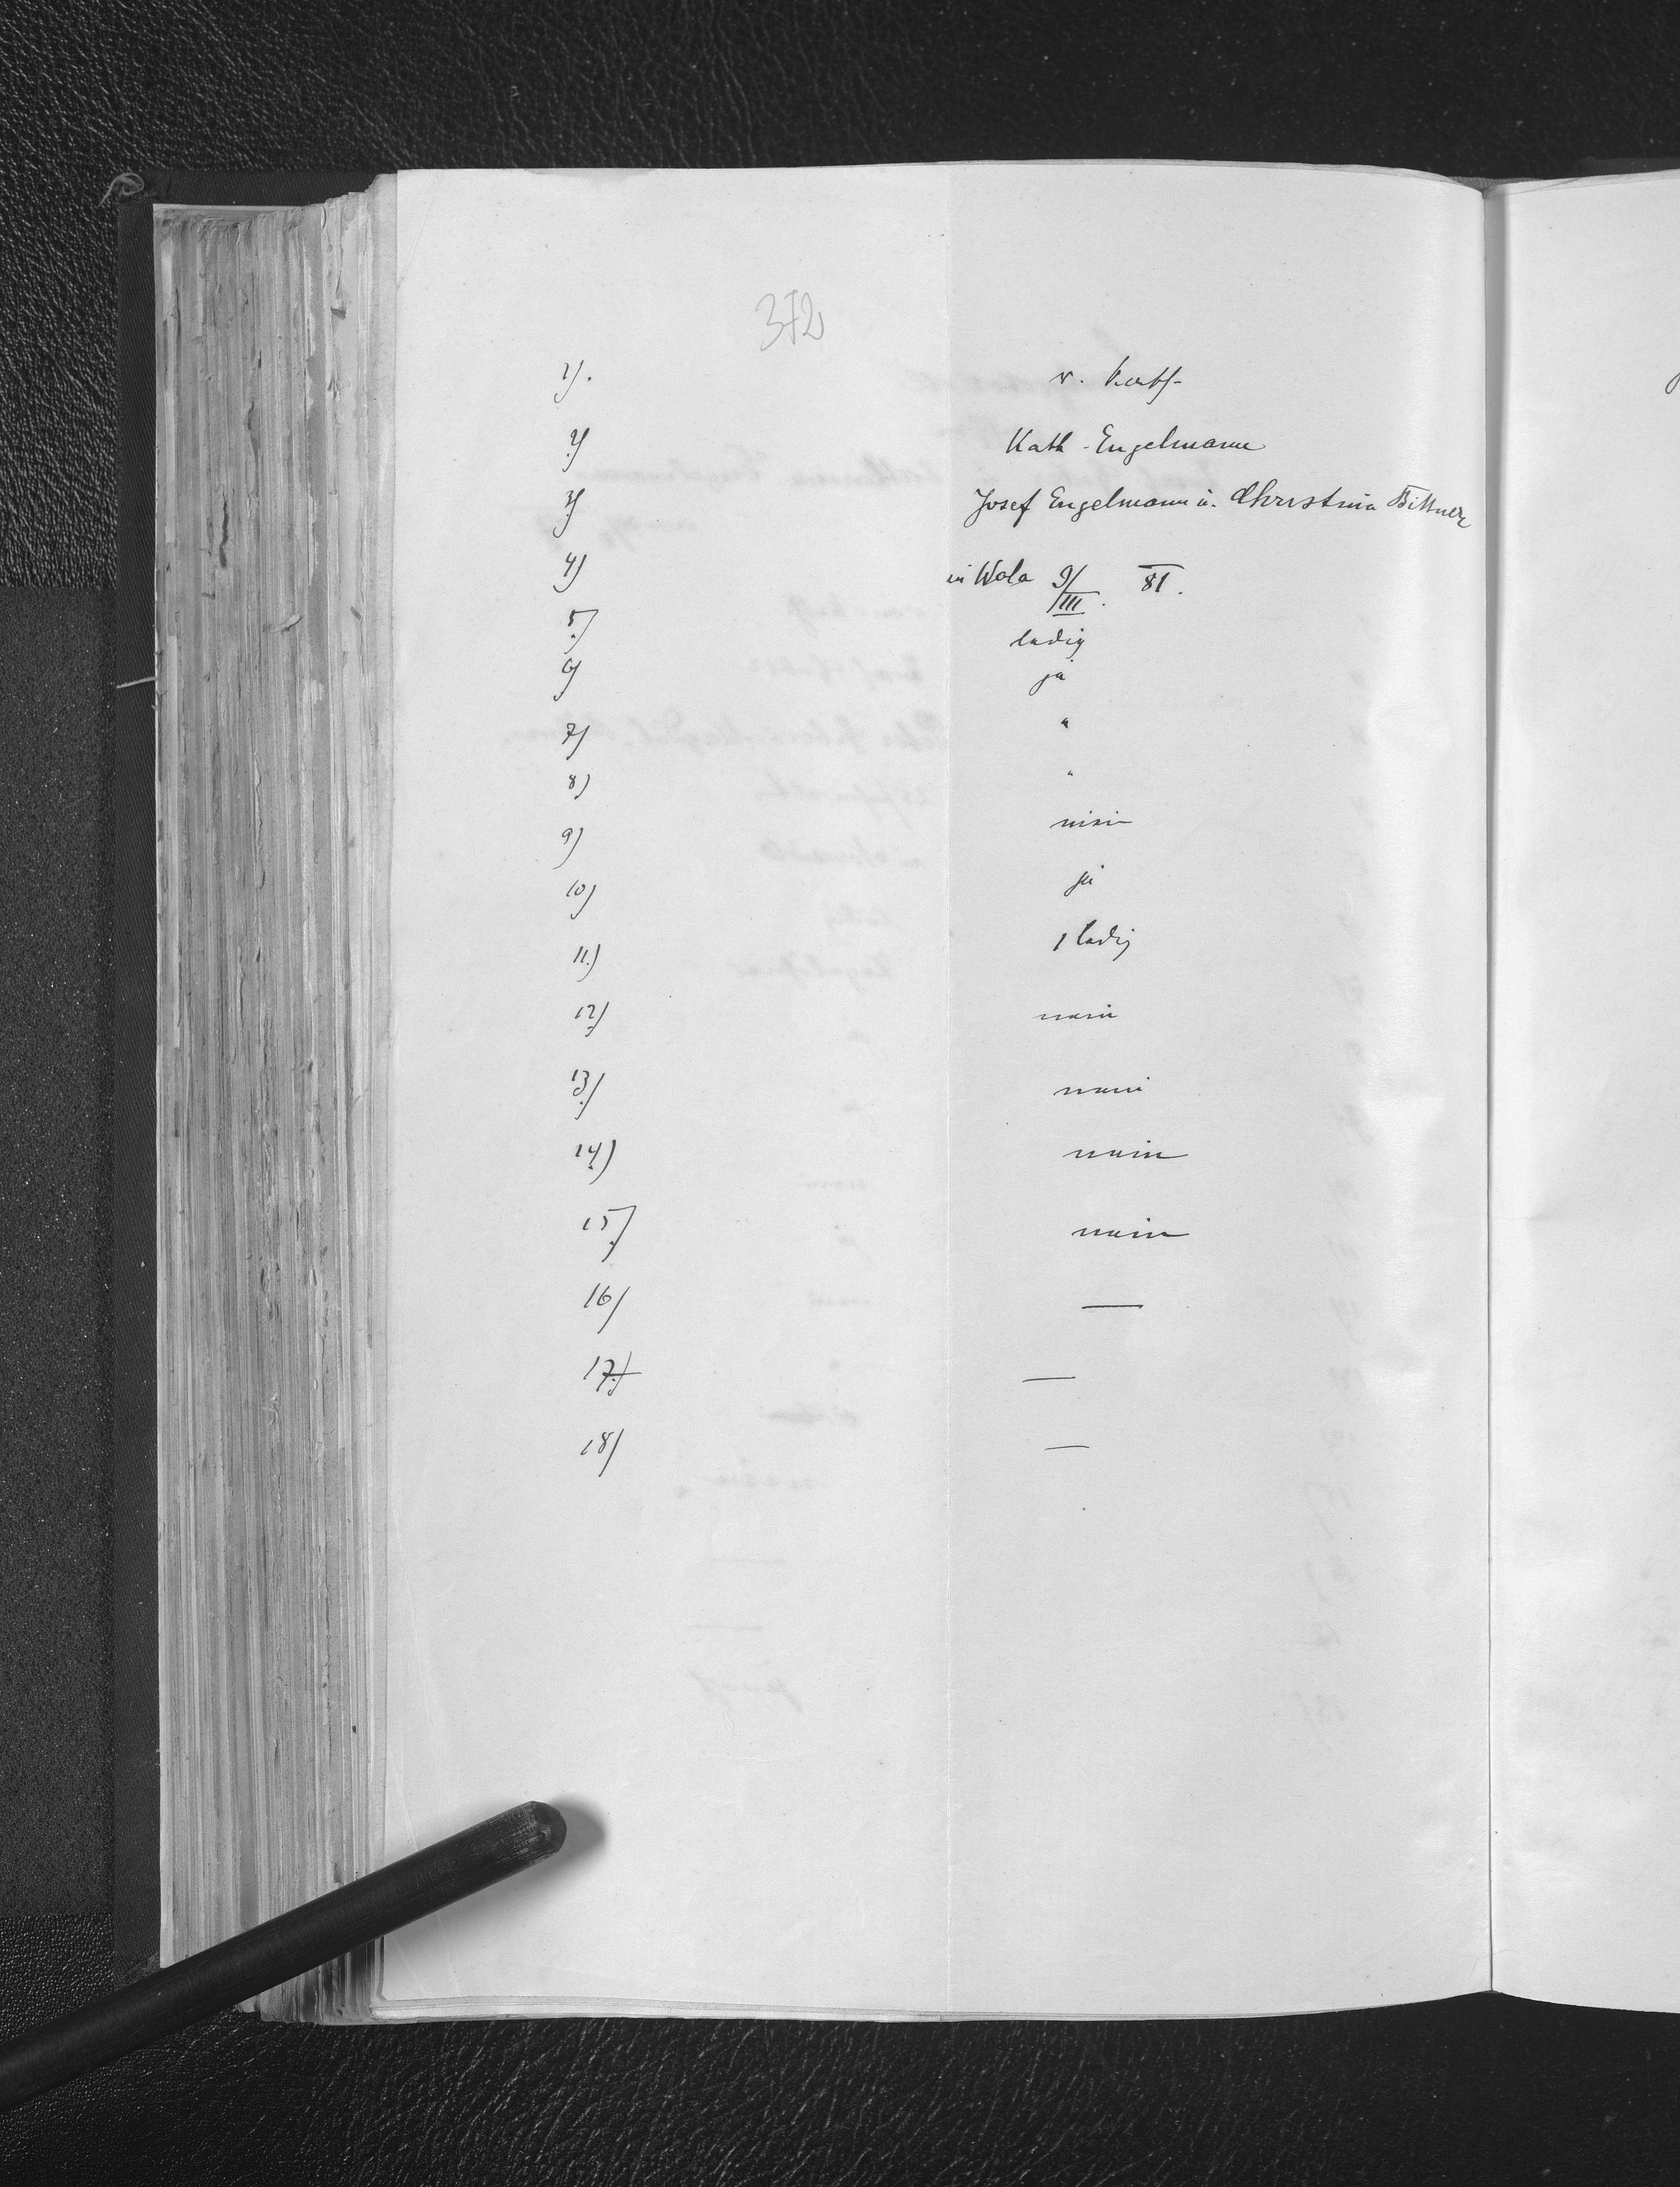 372
1). r. kath.
2) Kath. Engelmann
3) Josef Engelmann u. Christina Bittner
4) in Wola 9/III. 81.
5.) ledig
6) ja
7) "
8) "
9) nein
10) ja
11.) 1 ledig
12) nein
13.) nein
14) nein
15.) nein
16) —
17.) —
18) —